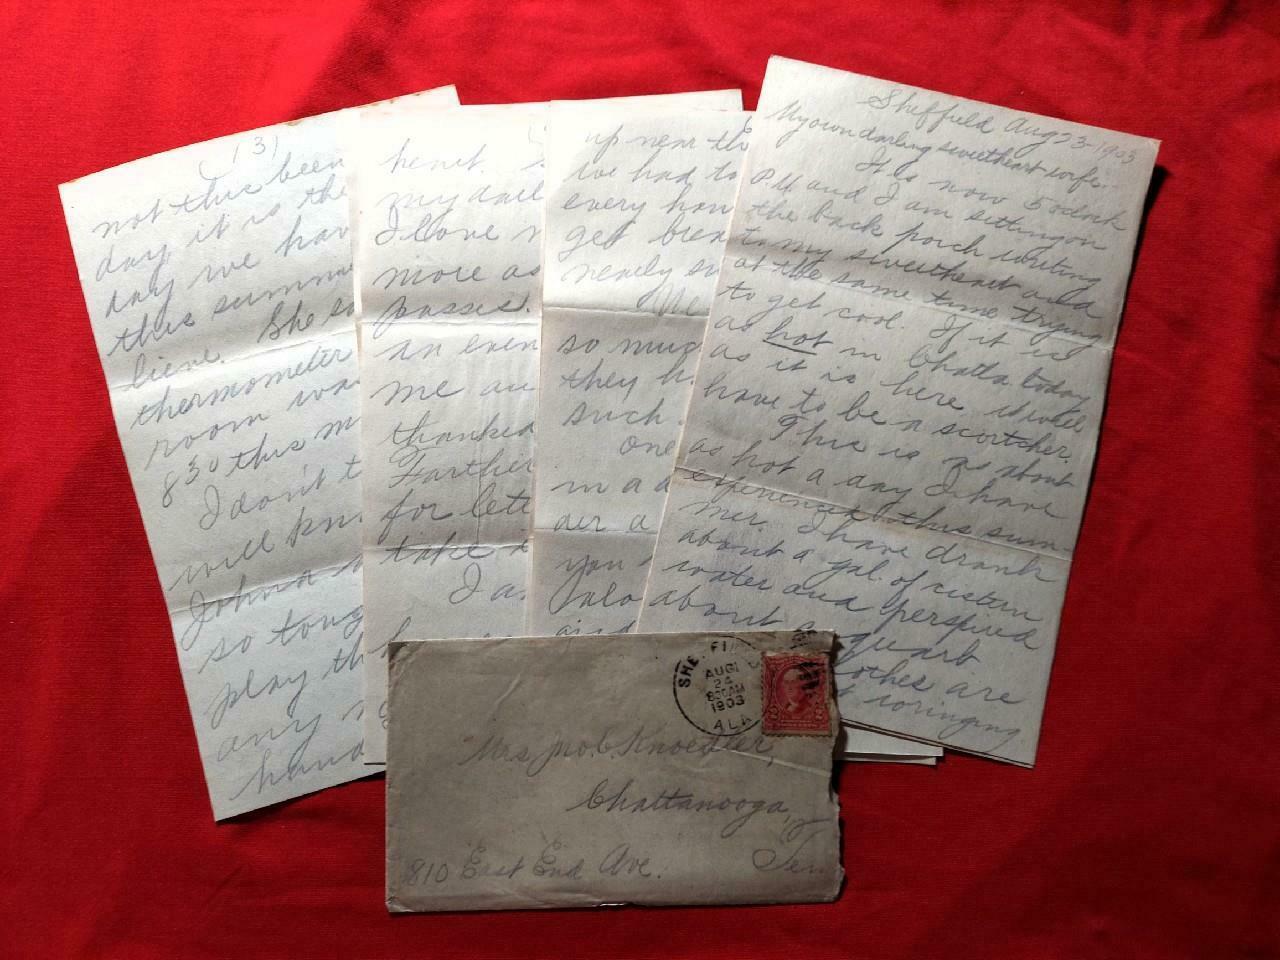 (13)
not this been
day it is the
day we hav
this summe
She sa
lieve.
thermometer
room was
8 30 this m
I don't t
will
Johna
so toug
play th
any
hand
I love
more as
passes.
an even
me au
thanked
Farther
for lett
take
I a
up near th
we had to
every hou
get
nearly su
We
so muc
they h
such.
One
in a
der a
you
Sheffield Aug 23-1903
My own darling sweetheart-wife.
It is now 5 oclock
P.M and I am sitting on
the back porch writing
to my sweetheart and
at the same time trying
to get cool. If it is
as hot in Chatta. today
as it is here it will
have to be a scortcher.
This is as about
as hot a day I have
experienced this sum-
mer. I have drank
about a gal. of cistern
water and perspired
about a quart
clothes are
wringing
SHEFFI
AUG
24
8 30 AM
1903
ALA
Mrs Jno. C. Knoedler,
Chattanooga,
810 East End Ave.
Ten